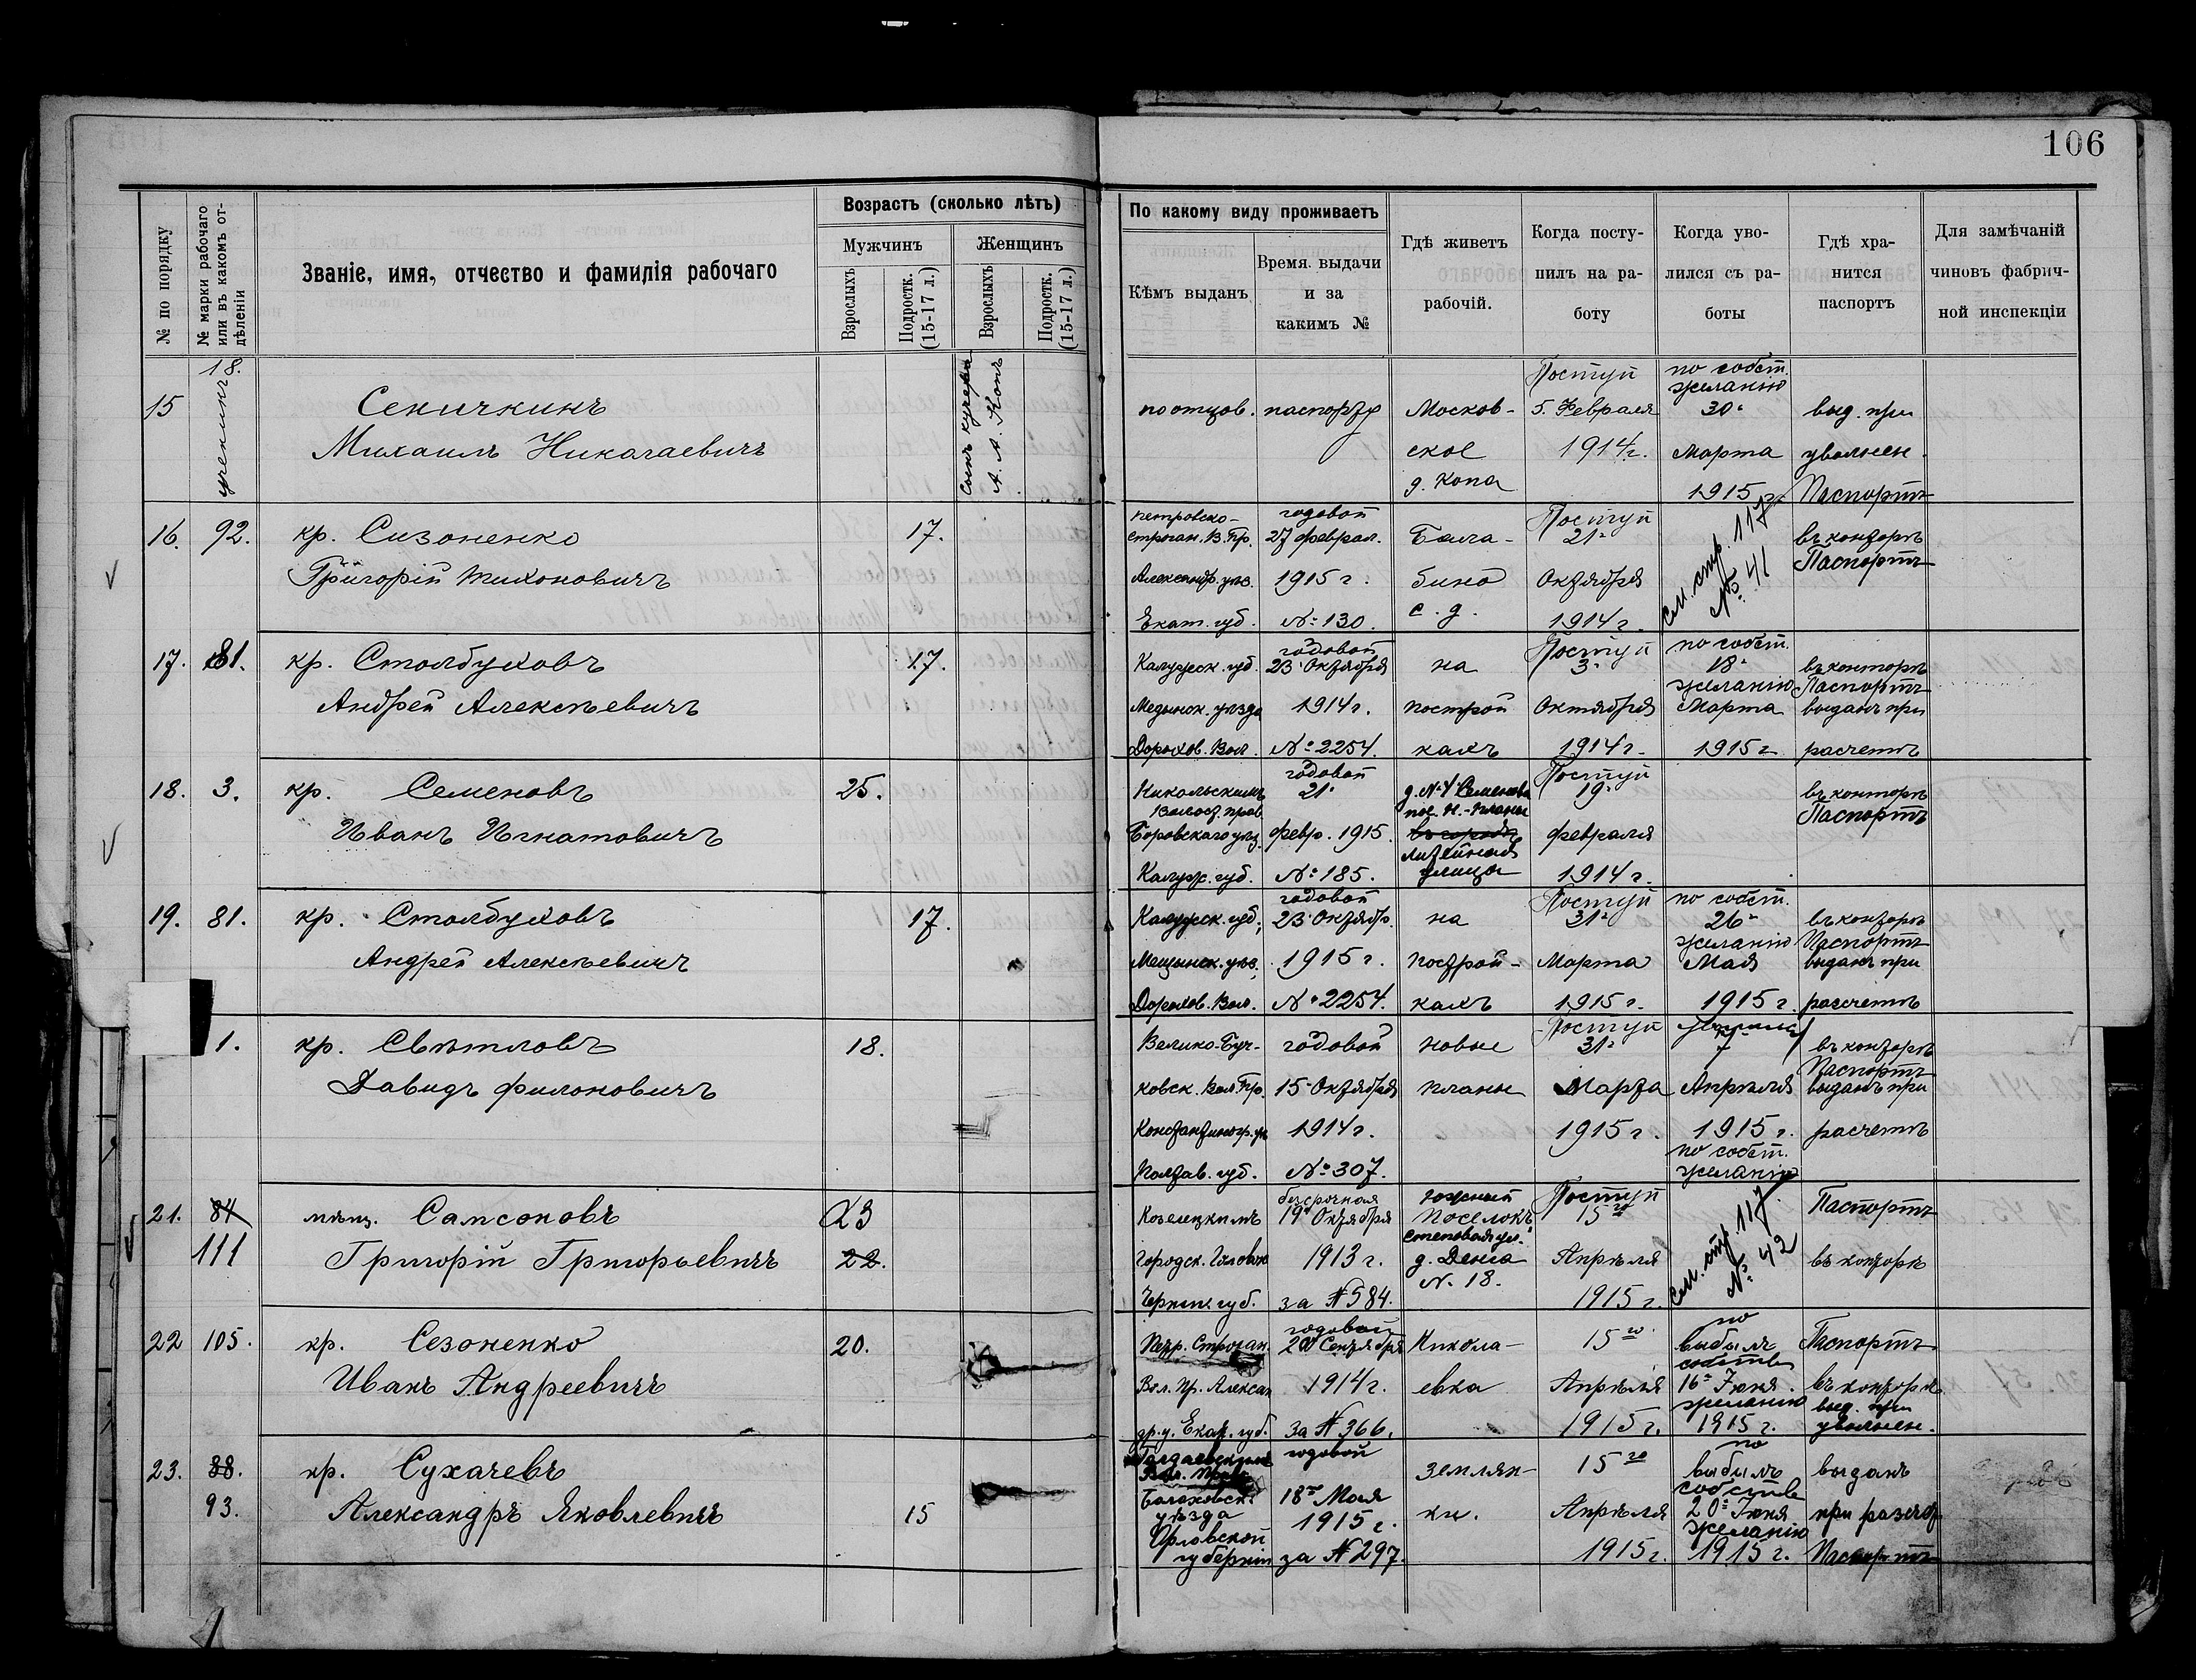 106
№ по порядку
№ марки рабочаго или въ какомъ отдѣленіи
Званіе, имя, отчество и фамилія рабочаго
Возрастъ (сколько лѣтъ)
Мужчинъ
Женщинъ
Взрослыхъ
Подростк. (15-17 л.)
Взрослыхъ
Подростк. (15-17 л.)
По какому виду проживаетъ
Кѣмъ выданъ
Время выдачи и за какимъ №
Гдѣ живетъ рабочій.
Когда поступилъ на работу
Когда уволился съ работы
Гдѣ хранится паспортъ
Для замѣчаній чиновъ фабричной инспекціи
15
18.
ученикъ
Сеничкинъ
Михаилъ Николаевичъ
сынъ кучера
А. А. Копъ
по отцов. паспорту
Москов-
ское
д. Копа
Поступ
5. Февраля
1914 г.
по собст.
желанію
30
Марта
1915 г.
выд. при
увольнен.
Паспортъ
16. 92.
кр. Сизоненко
Григорій Тихоновичъ
17.
Петровско-
строган. В. Пр.
Александр. уѣз.
Екат. губ.
годовой
27 феврал.
1915 г.
№ 130.
Бала-
бино
с. д.
Поступ
21
Октября
1914 г.
См. стр. 117
№ 41
въ конторѣ
Паспортъ
17. 81.
кр. Столбуховъ
Андрей Алексѣевичъ
17.
Калужск. губ.
Медынск. уѣзда
Дорохов. Вол.
годовой
23 Октября
1914 г.
№ 2254.
на
построй
кахъ
Поступ
3
Октября
1914 г.
по собст.
18
желанію
Марта
1915 г.
въ конторѣ
Паспортъ
выданъ при
расчетѣ
18. 3.
кр. Семеновъ
Иванъ Игнатовичъ
25.
Никольскимъ
Волост. прав.
Боровского уѣз.
Калуж. губ.
годовой
21
февр. 1915.
№ 185.
д. № 4 Семенова
пос. Н.-Планы
въ городѣ
Литейная
улица
Поступ
19
февраля
1914 г.
въ конторѣ
Паспортъ
19. 81.
кр. Столбуховъ
Андрей Алексѣевичъ
17.
Калужск. губ.
Мещынск. уѣз.
Дорохов. Вол.
годовой
23 Октябр.
1915 г.
№ 2254.
на
построй-
кахъ
Поступ
31
Марта
1915 г.
по собст.
26
желанію
Мая
1915 г.
въ конторѣ
Паспортъ
выданъ при
расчетѣ
1.
кр. Свѣтловъ
Давидъ Филоновичъ
18.
Велико-Буч-
ковск. Вол. Пр.
Константиногр. у.
Полтав. губ.
годовой
15 Октября
1914 г.
№ 307.
новые
планы
Поступ
31
Марта
1915 г.
7
Апрѣля
1915 г.
по собст.
желанію
въ конторѣ
Паспортъ
выданъ при
расчетѣ
21. 84
111
мѣщ. Самсоновъ
Григорій Григорьевичъ
23
22.
Козелецкимъ
Городск. Головою
Черниг. губ.
безсрочная
19 Октября
1913 г.
за № 584.
Южный
поселокъ
Степовая ул.
д. Денга
№. 18.
Поступ
15 го
Апрѣля
1915 г.
См. стр. 117.
№ 42
Паспортъ
въ конторѣ
22 105.
кр. Сезоненко
Иванъ Андреевичъ
20.
Петр. Строган.
Вол. Пр. Алексан
др. у. Екат. губ.
годовой
20 Сентября
1914 г.
за № 366.
Никола-
евка
15 го
Апрѣля
1915 г.
по
выбылъ
собствен
16 Іюня
желанію
1915 г.
Паспортъ
въ конторѣ
выд. при
увольнен.
23. 88.
93.
кр. Сухачевъ
Александръ Яковлевичъ
15
Вол. Прав.
Болховск.
уѣзда
Орловской
губерніи
годовой
18 го Мая
1915 г.
за № 297.
землян-
ки.
15 го
Апрѣля
1915 г.
по
выбылъ
собствен
20 Іюня
желанію
1915 г.
выданъ
при разчет
Паспортъ